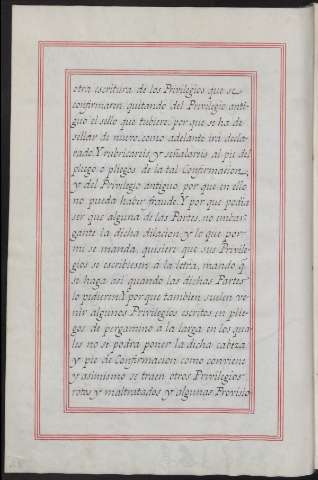 otra escritura de los Privilegios que se
confirmaren, quitando del Privilegio anti-
guo el sello que tubiere, por que se ha de
sellar de nuevo, como adelante irá decla-
rado. Y rubricareis y señalareis al pie del
pliego o pliegos de la tal Confirmacion,
y del Privilegio antiguo, por que en ello
no pueda haber fraude. Y por que podia
ser que alguna de las Partes, no embar-
gante la dicha dilacion, y lo que por
mi se manda, quisiere que sus Privile-
gios se escribiesen á la letra, mando q.
se haga asi quando los dichas Partes
lo pidieren. Y por que tambien suelen ve-
nir algunos Privilegios escritos en plie-
gos de pergamino a la larga, en los qua-
les no se podra poner la dicha cabeza
y pie de Confirmacion como conviene
y asimismo se traen otros Privilegios
rotos y maltratados y algunas Provisio